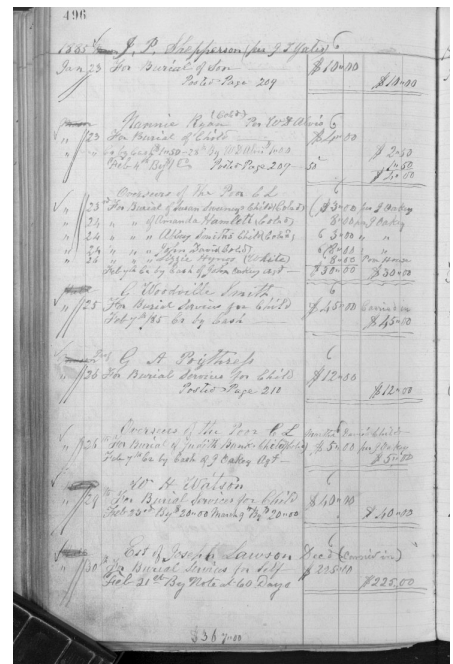 496
1885 J. P. Shepperson (per J T Yates) 6
Jan 23 For Burial of Son $10"00
Posted Page 209 $10"00
Nannie Ryan (Cold) Per W D Alvis 6
" 23 For Burial of Child $4"00
$2"50
Feb 4th By Posted Page 209 50 1"50
$4"00
Overseers of the Poor C L 6
" 23 For Burial of Susan Child (Colod) ( $3"00 per J Oakey
" 24 " " of Amanda Hamlett (Colod) 8"00 per J Oakey
" 24 " " Abbey Smiths Child (Colod) 6 3"00 " "
" 24 " " John David (Cold) 8"00 "
" 26 " " Lizzie Hynes (White) 8"00 Poor House
Feb 7th Cr by Cash of John Oakey agt $30"00 $30"00
C Woodville Smith 6
" 25 For Burial Services for Child $45"00
Feb 7th 85 Cr by Cash $45"00
G A Poythress 6
" 26 For Burial Service for Child $12"00
Posted Page 210 $12"00
Overseers of the Poor C L
" 26 For Burial of Judith Child $5"00 per J Oakey
Feb 7th Cr by Cash of J Oakey Agt $5"00
W H Watson 6
" 29 For Burial Services for Child $40"00
Feb 23rd By $20"00 March 9th By $20"00 $40"00
Est of Joseph Lawson Decd
" 30 For Burial Services for Self $225"00
Feb 21st By Note at 60 Days $225.00
$367"00